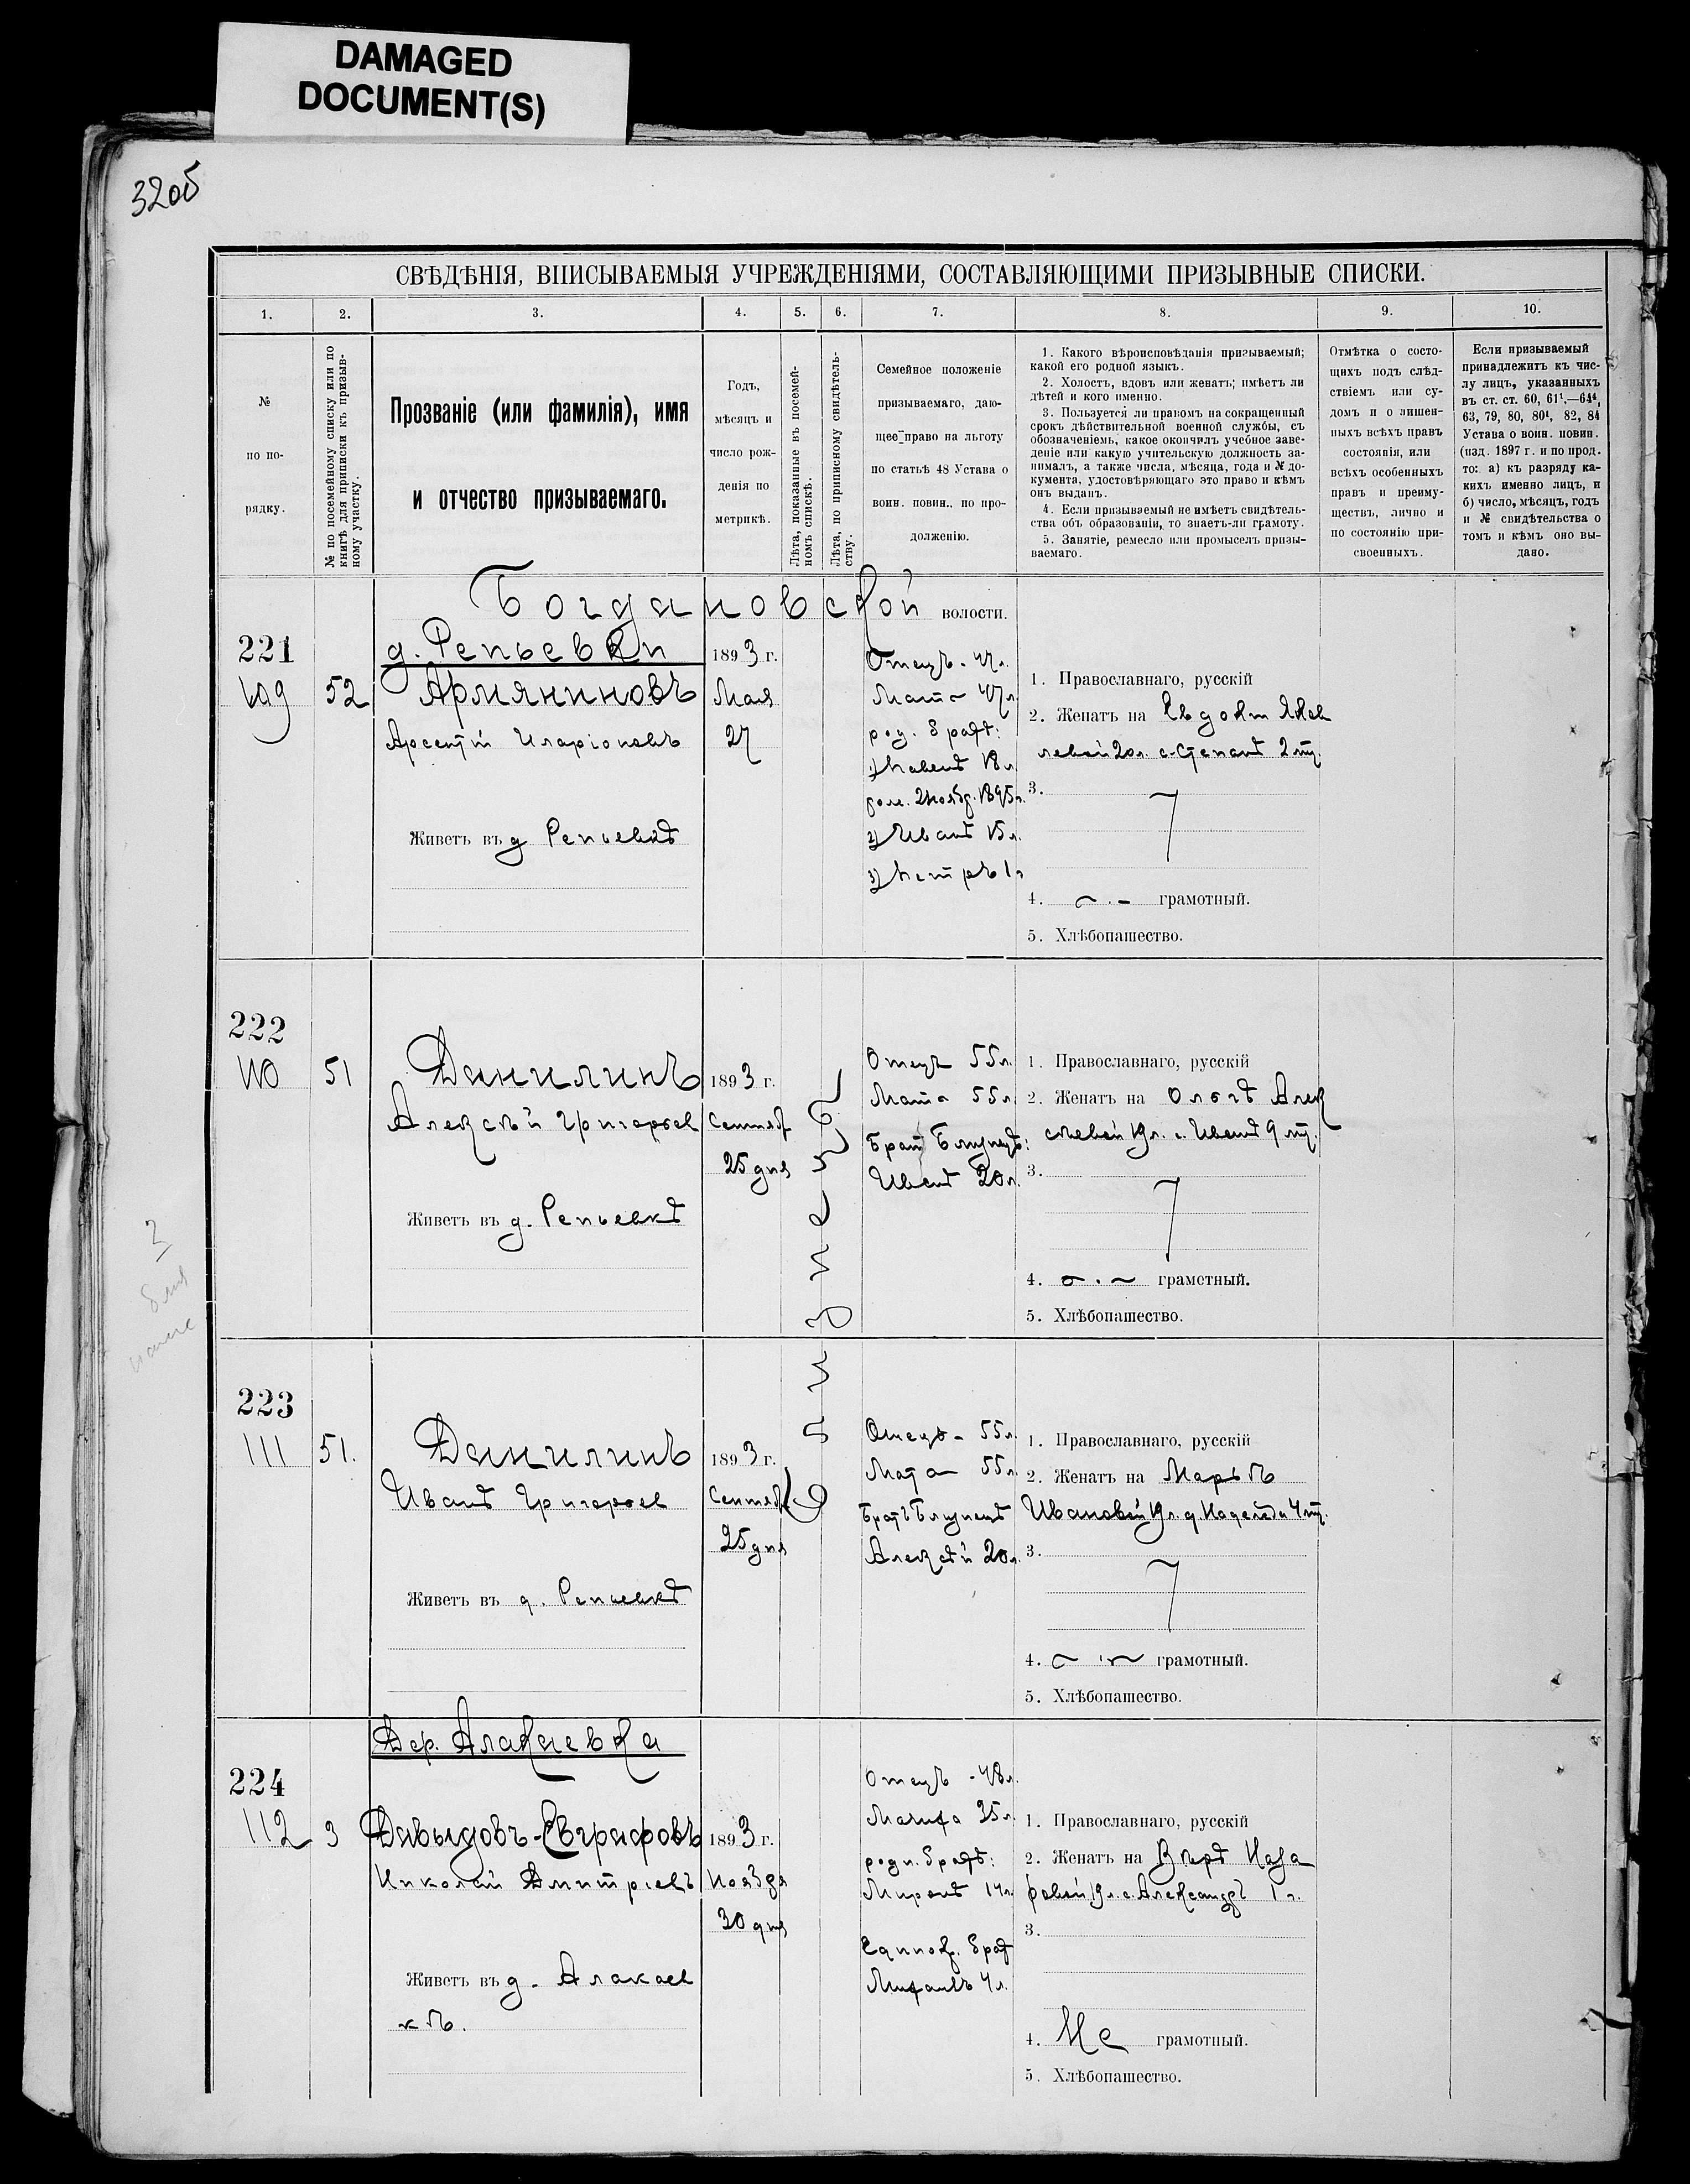 DAMAGED
DOCUMENT(S)
32об
СВѢДѢНІЯ, ВПИСЫВАЕМЫЯ УЧРЕЖДЕНІЯМИ, СОСТАВЛЯЮЩИМИ ПРИЗЫВНЫЕ СПИСКИ.
1. 2. 3. 4. 5. 6. 7. 8. 9. 10.
№
по по-
рядку.
№ по посемейному списку или по
книгѣ для приписки къ призыв-
ному участку.
Прозваніе (или фамилія), имя
и отчество призываемаго.
Годъ,
мѣсяцъ и
число рож-
денія по
метрикѣ.
Лѣта, показанные въ посемей-
номъ спискѣ.
Лѣта, по приписному свидѣтель-
ству.
Семейное положеніе
призываемаго, даю-
щее право на льготу
по статьѣ 48 Устава о
воин. повин.. по про-
долженію.
1. Какого вѣроисповѣданія призываемый;
какой его родной языкъ.
2. Холостъ, вдовъ или женатъ; имѣетъ ли
дѣтей и кого именно.
3. Пользуется ли правомъ на сокращенный
срокъ дѣйствительной военной службы, съ
обозначеніемъ, какое окончилъ учебное заве-
деніе или какую учительскую должность за-
нималъ, а также числа, мѣсяца, года и № до-
кумента, удостовѣряющаго это право и кѣмъ
онъ выданъ.
4. Если призываемый не имѣетъ свидѣтель-
ства объ образованіи, то знаетъ-ли грамоту.
5. Занятіе, ремесло или промыселъ призы-
ваемаго.
Отмѣтка о состо-
щихъ подъ слѣд-
ствіемъ или су-
домъ и о лишен-
ныхъ всѣхъ правъ
состоянія, или
всѣхъ особенныхъ
правъ и преиму-
ществъ, лично и
по состоянію при-
своенныхъ.
Если призываемый
принадлежитъ къ чис-
лу лицъ, указанныхъ
въ ст. ст. 60, 61¹,—64⁴,
63, 79, 80, 80¹, 82, 84
Устава о воин. повин.
(изд. 1897 г. и по прод.
то: а) къ разряду ка-
кихъ именно лицъ, и
б) число, мѣсяцъ, годъ
и № свидѣтельства о
томъ и кѣмъ оно вы-
дано.
Богдановской волости.
д. Репьевки
221
109 52
Армяниновъ
Арсентій Иларіоновъ
Живетъ въ д Репьевкѣ
1893 г.
Мая
27
Отецъ - 47 л.
Мать 47 л.
род. братья:
1) Павелъ 18 л
рож. 2 Нояб. 1895 г.
2) Иванъ 15 л.
3) Петръ 1 г
1. Православнаго, русскій
2. Женатъ на Евдокіи Яков
левой 20 л. с. Степанъ 2 м.
3.
4. грамотный.
5. Хлѣбопашество.
222
110 51
Данилинъ
Алексѣй Григорьев
Живетъ въ д. Репьевкѣ
1893 г.
Сентяб
25 дня
Отецъ 55 л.
Мать 55 л.
Братъ близнецъ:
Иванъ 20 л.
1. Православнаго, русскій
2. Женатъ на Ольгѣ Алек
сѣевой 19 л. с. Иванъ 9 м.
3.
4. грамотный.
5. Хлѣбопашество.
223
111 51.
Данилинъ
Иванъ Григорьев
Живетъ въ д. Репьевкѣ
1893 г.
Сентяб
25 дня
Отецъ - 55 л.
Мать 55 л.
Братъ Близнецъ
Алексѣй 20 л.
1. Православнаго, русскій
2. Женатъ на Марьѣ
Ивановой 19 л. д. Надежда 4 м.
3.
4. грамотный.
5. Хлѣбопашество.
Дер. Алакаевка
224
112 3
Давыдовъ-Евграфовъ
Николай Дмитріевъ
Живетъ въ д. Алакаев
кѣ.
1893 г.
Ноября
30 дня
Отецъ - 48 л.
Мачиха 35 л.
родн. братъ:
Миронъ 14 л
Единок. брат
Михаилъ 4 л.
1. Православнаго, русскій
2. Женатъ на Вѣрѣ Наза
ровой 19 л. с. Александръ 1 г.
3.
4. Не грамотный.
5. Хлѣбопашество.